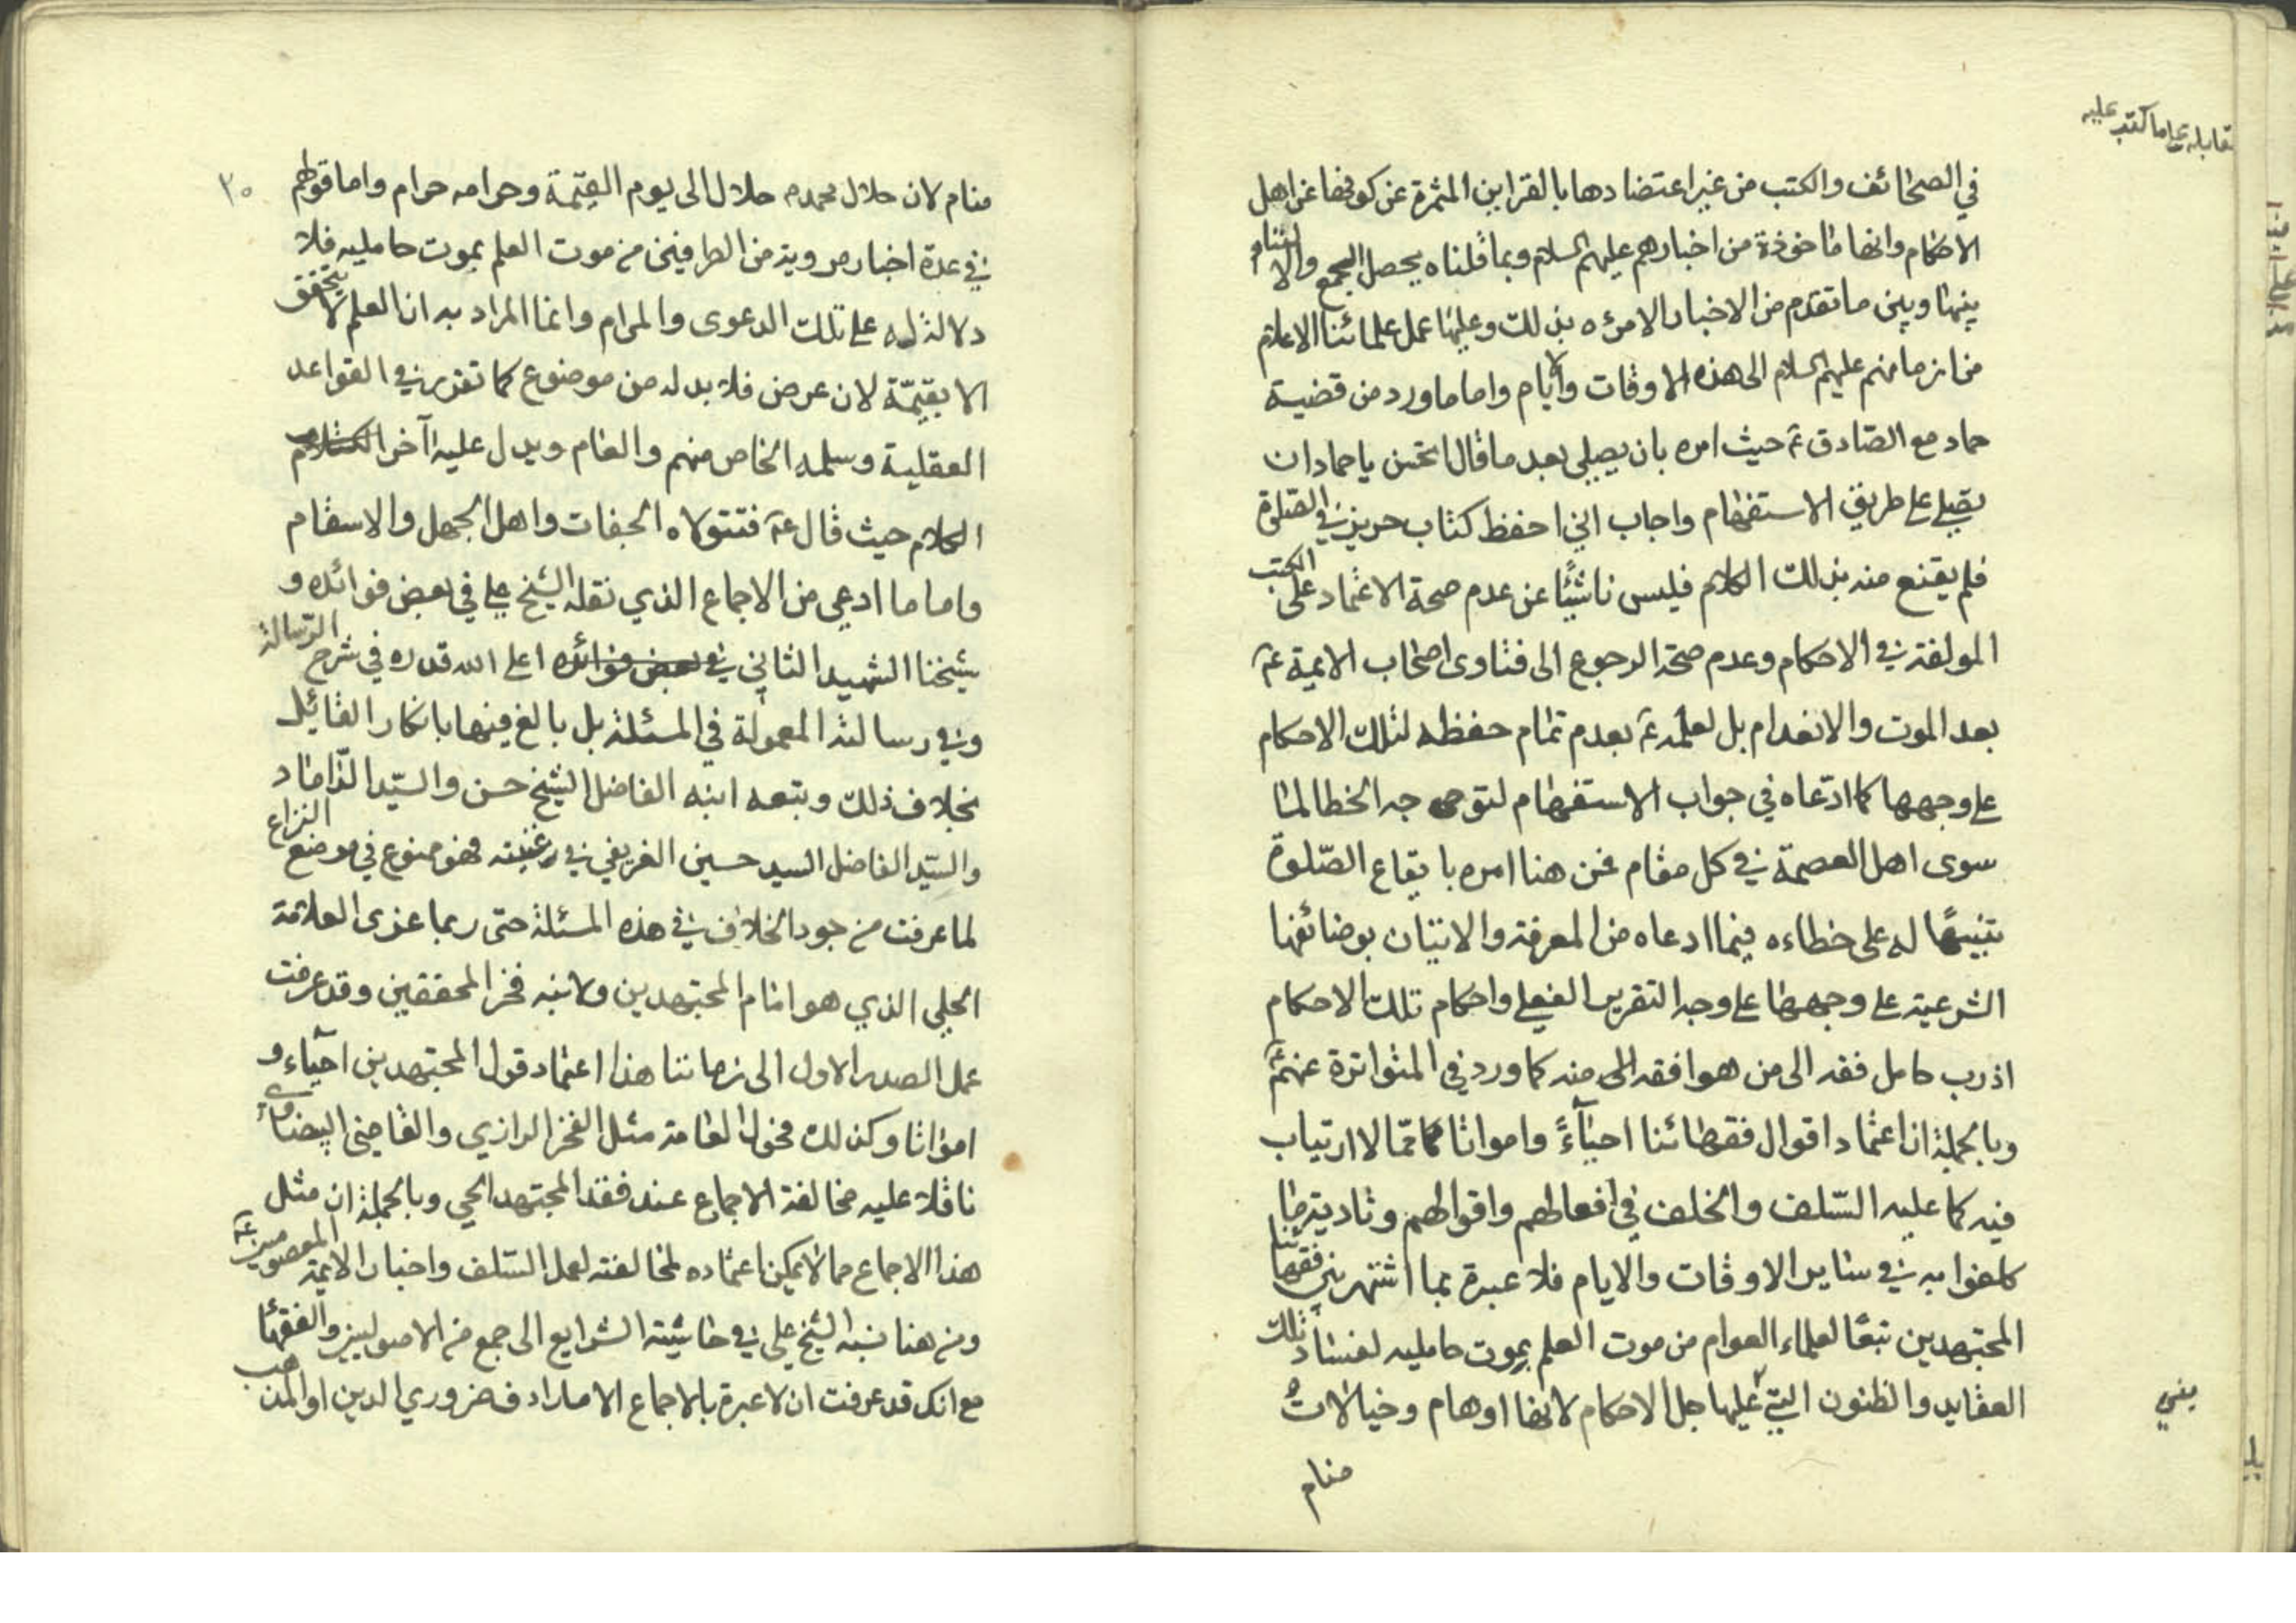 مقابلة على ما كتب عليه
في الصحائف والكتب من غير اعتضادها بالقراين المثمرة عن كونها عن اهل
الاحكام وانها ماخوذة من اخبارهم عليهم السلام وبما قلناه يحصل الجمع والالتيام
بينها وبين ما تقدم من الاخبار الامرة بذلك وعليها عمل علمائنا الاعلام
من ازمانهم عليهم السلام الى هذه الاوقات والايام واما ما ورد من قضية
حماد مع الصادق ع حيث امره بان يصلي بعد ما قال اتحسن يا حماد ان
تصلي على طريق الاستفهام واجاب اني احفظ كتاب حريز في الصلوة
فلم يقنع منه بذلك الكلام فليس ناشئًا عن عدم صحة الاعتماد على الكتب
المولفة في الاحكام وعدم صحة الرجوع الى فتاوى اصحاب الايمة ع
بعد الموت والانعدام بل لعلمه ع بعدم تمام حفظه لتلك الاحكام
على وجهها كما ادعاه في جواب الاستفهام لتوجه الخطا لما
سوى اهل العصمة في كل مقام فمن هنا امره بايقاع الصلوة
تنبيهًا له على خطاءه فيما ادعاه من المعرفة والاتيان بوضائفها
الشرعية على وجهها على وجه التقرير الفعلي واحكام تلك الاحكام
اذ رب حامل فقه الى من هو افقه منه كما ورد في المتواترة عنهم ع
وبالجملة ان اعتماد اقوال فقهائنا احيآءً وامواتا مما لا ارتياب
فيه كما عليه السلف والخلف في افعالهم واقوالهم وتادية ما
كلفوا به في ساير الاوقات والايام فلا عبرة بما اشتهر بين فقهائنا
المجتهدين تبعًا لعلماء العوام من موت العلم بموت حامليه لفساد تلك
العقايد والظنون التي عليها جل الاحكام لانها اوهام وخيالات
منام
٣٠
منام لان حلال محمد حلال الى يوم القيمة وحرامه حرام واما قولهم
في عدة اخبار مروية من الطرفين من موت العلم بموت حامليه فلا
دلالة له على تلك الدعوى والمرام وانما المراد به ان العلم لا يتحقق
الا بقيمة لان عرض فلا بد له من موضوع كما تقرر في القواعد
العقلية وسلمه الخاص منهم والعام ويدل عليه آخر
الكلام حيث قال ع فتتولاه الجفات واهل الجهل والاسقام
واما ما ادعي من الاجماع الذي نقله الشيخ علي في بعض فوائده و
شيخنا الشهيد الثاني في بعض فوائده اعلى الله قدره في شرح الرسالة
وفي رسالته المعمولة في المسئلة بل بالغ فيها بانكار القائيل
بخلاف ذلك وتبعه ابنه الفاضل الشيخ حسن والسيد الداماد
والسيد الفاضل السيد حسين الغريفي في غنيته فهو ممنوع في موضع النزاع
لما عرفت من وجود الخلاف في هذه المسئلة حتى ربما عزى العلامة
الحلي الذي هو امام المجتهدين ولابنه فخر المحققين وقد عرفت
عمل الصدر الاول الى زماننا هذا اعتماد قول المجتهدين احيآء و
امواتا وكذلك فحول العامة مثل الفخر الرازي والقاضي البيضاوي
ناقلا عليه مخالفة الاجماع عند فقد المجتهد الحي وبالجملة ان مثل
هذا الاجماع مما لا يمكن اعتماده لمخالفته لعمل السلف واخبار الايمة المعصومين ع
ومن هنا نسبه الشيخ علي في حاشية الشرايع الى جمع من الاصوليين والفقهاء
مع انك قد عرفت ان لا عبرة بالاجماع الا ما رادف ضروري الدين او المذهب